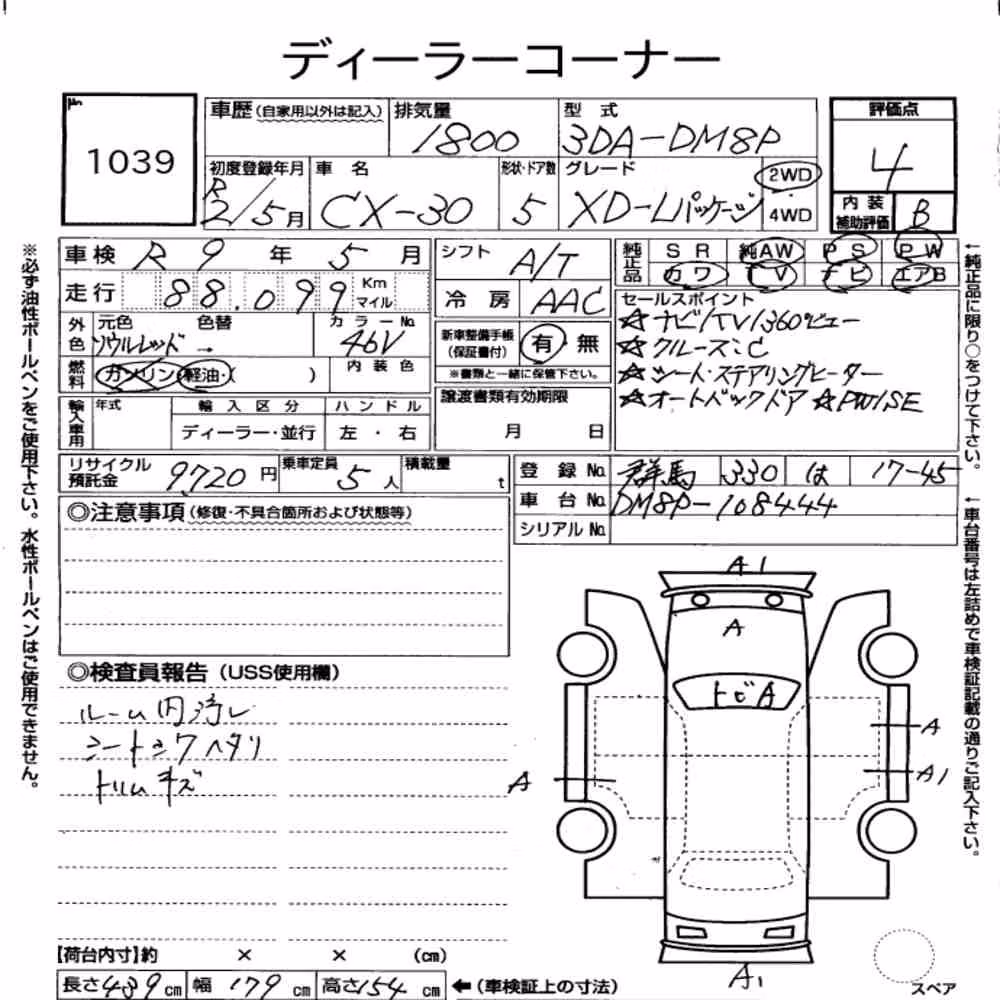 ディーラーコーナー
1039
車歴 (自家用以外は記入) 排気量 型式 評価点
1800 3DA-DM8P 4
初度登録年月 車名 形状・ドア数 グレード 2WD
R2/5月 CX-30 5 XD-Lパッケージ 4WD
内装補助評価 B
車検 R9年5月 シフト A/T
純正品 SR 純AW PS PW
カワ TV ナビ エアB
走行 88.099 Km マイル
冷房 AAC
セールスポイント
☆ナビ/TV/360ビュー
☆クルーズ:C
☆シート・ステアリングヒーター
☆オートバックドア ☆PW/SE
外色 元色 色替 カラーNo.
ソウルレッド → 46V
新車整備手帳 (保証書付) 有・無
※書類と一緒に保管下さい。
燃料 ガソリン・軽油・( ) 内装色
譲渡書類有効期限
月 日
輸入車用 年式 輸入区分 ハンドル
ディーラー・並行 左・右
リサイクル預託金 9720円 乗車定員 5人 積載量 t
登録No. 群馬 330 は 17-45
車台No. DM8P-108444
シリアルNo.
◎注意事項 (修復・不具合箇所および状態等)
◎検査員報告 (USS使用欄)
ルーム内汚レ
シートシワヘタリ
トリムキズ
A1
A
トビA
A
A1
A
A1
スペア
【荷台内寸】約 × × (cm)
長さ 439cm 幅 179cm 高さ 154cm ←(車検証上の寸法)
※必ず油性ボールペンをご使用下さい。水性ボールペンはご使用できません。
←純正品に限り○をつけて下さい。
←車台番号は左詰めで車検証記載の通りご記入下さい。